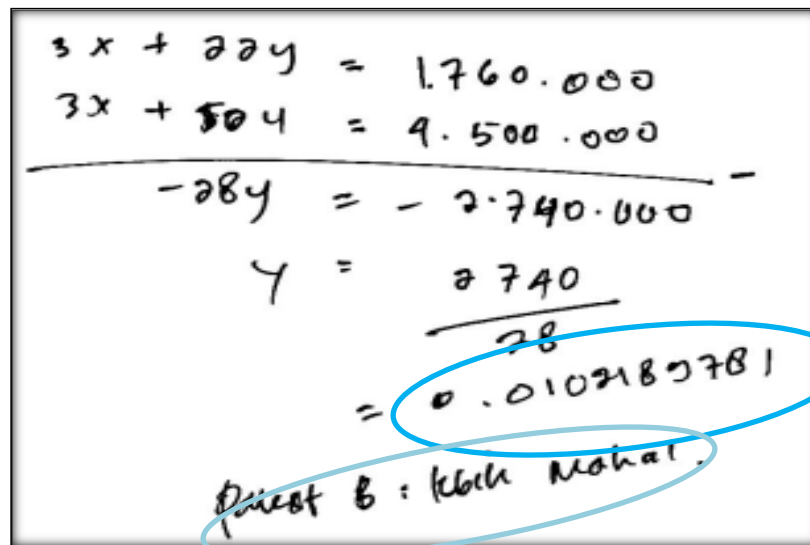 3x + 22y = 1.760.000
3x + 50y = 4.500.000
-28y = - 2.740.000 -
y = 2740
28
= 0.0102189781
Paket B : lebih mahal.